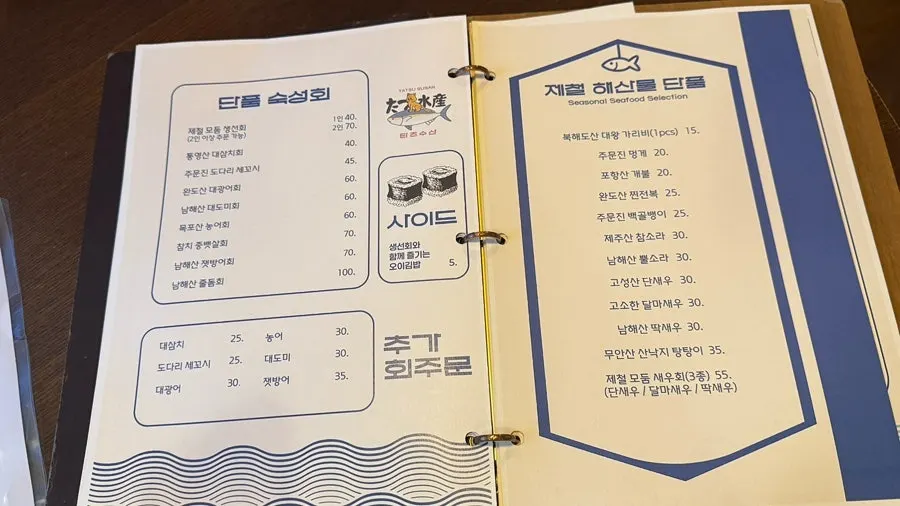 단품 숙성회
제철 모둠 생선회 1인 40.
(2인 이상 주문 가능) 2인 70.
통영산 대삼치회 40.
주문진 도다리 세꼬시 45.
완도산 대광어회 60.
남해산 대도미회 60.
목포산 농어회 60.
참치 중뱃살회 70.
남해산 잿방어회 70.
남해산 줄돔회 100.
TATSU SUSAN
たつ水産
타츠수산
사이드
생선회와
함께 즐기는
오이김밥 5.
대삼치 25. 농어 30.
도다리 세꼬시 25. 대도미 30.
대광어 30. 잿방어 35.
추가
회주문
제철 해산물 단품
Seasonal Seafood Selection
북해도산 대왕 가리비(1pcs) 15.
주문진 멍게 20.
포항산 개불 20.
완도산 찐전복 25.
주문진 백골뱅이 25.
제주산 참소라 30.
남해산 뿔소라 30.
고성산 단새우 30.
고소한 달마새우 30.
남해산 딱새우 30.
무안산 산낙지 탕탕이 35.
제철 모둠 새우회(3종) 55.
(단새우 / 달마새우 / 딱새우)